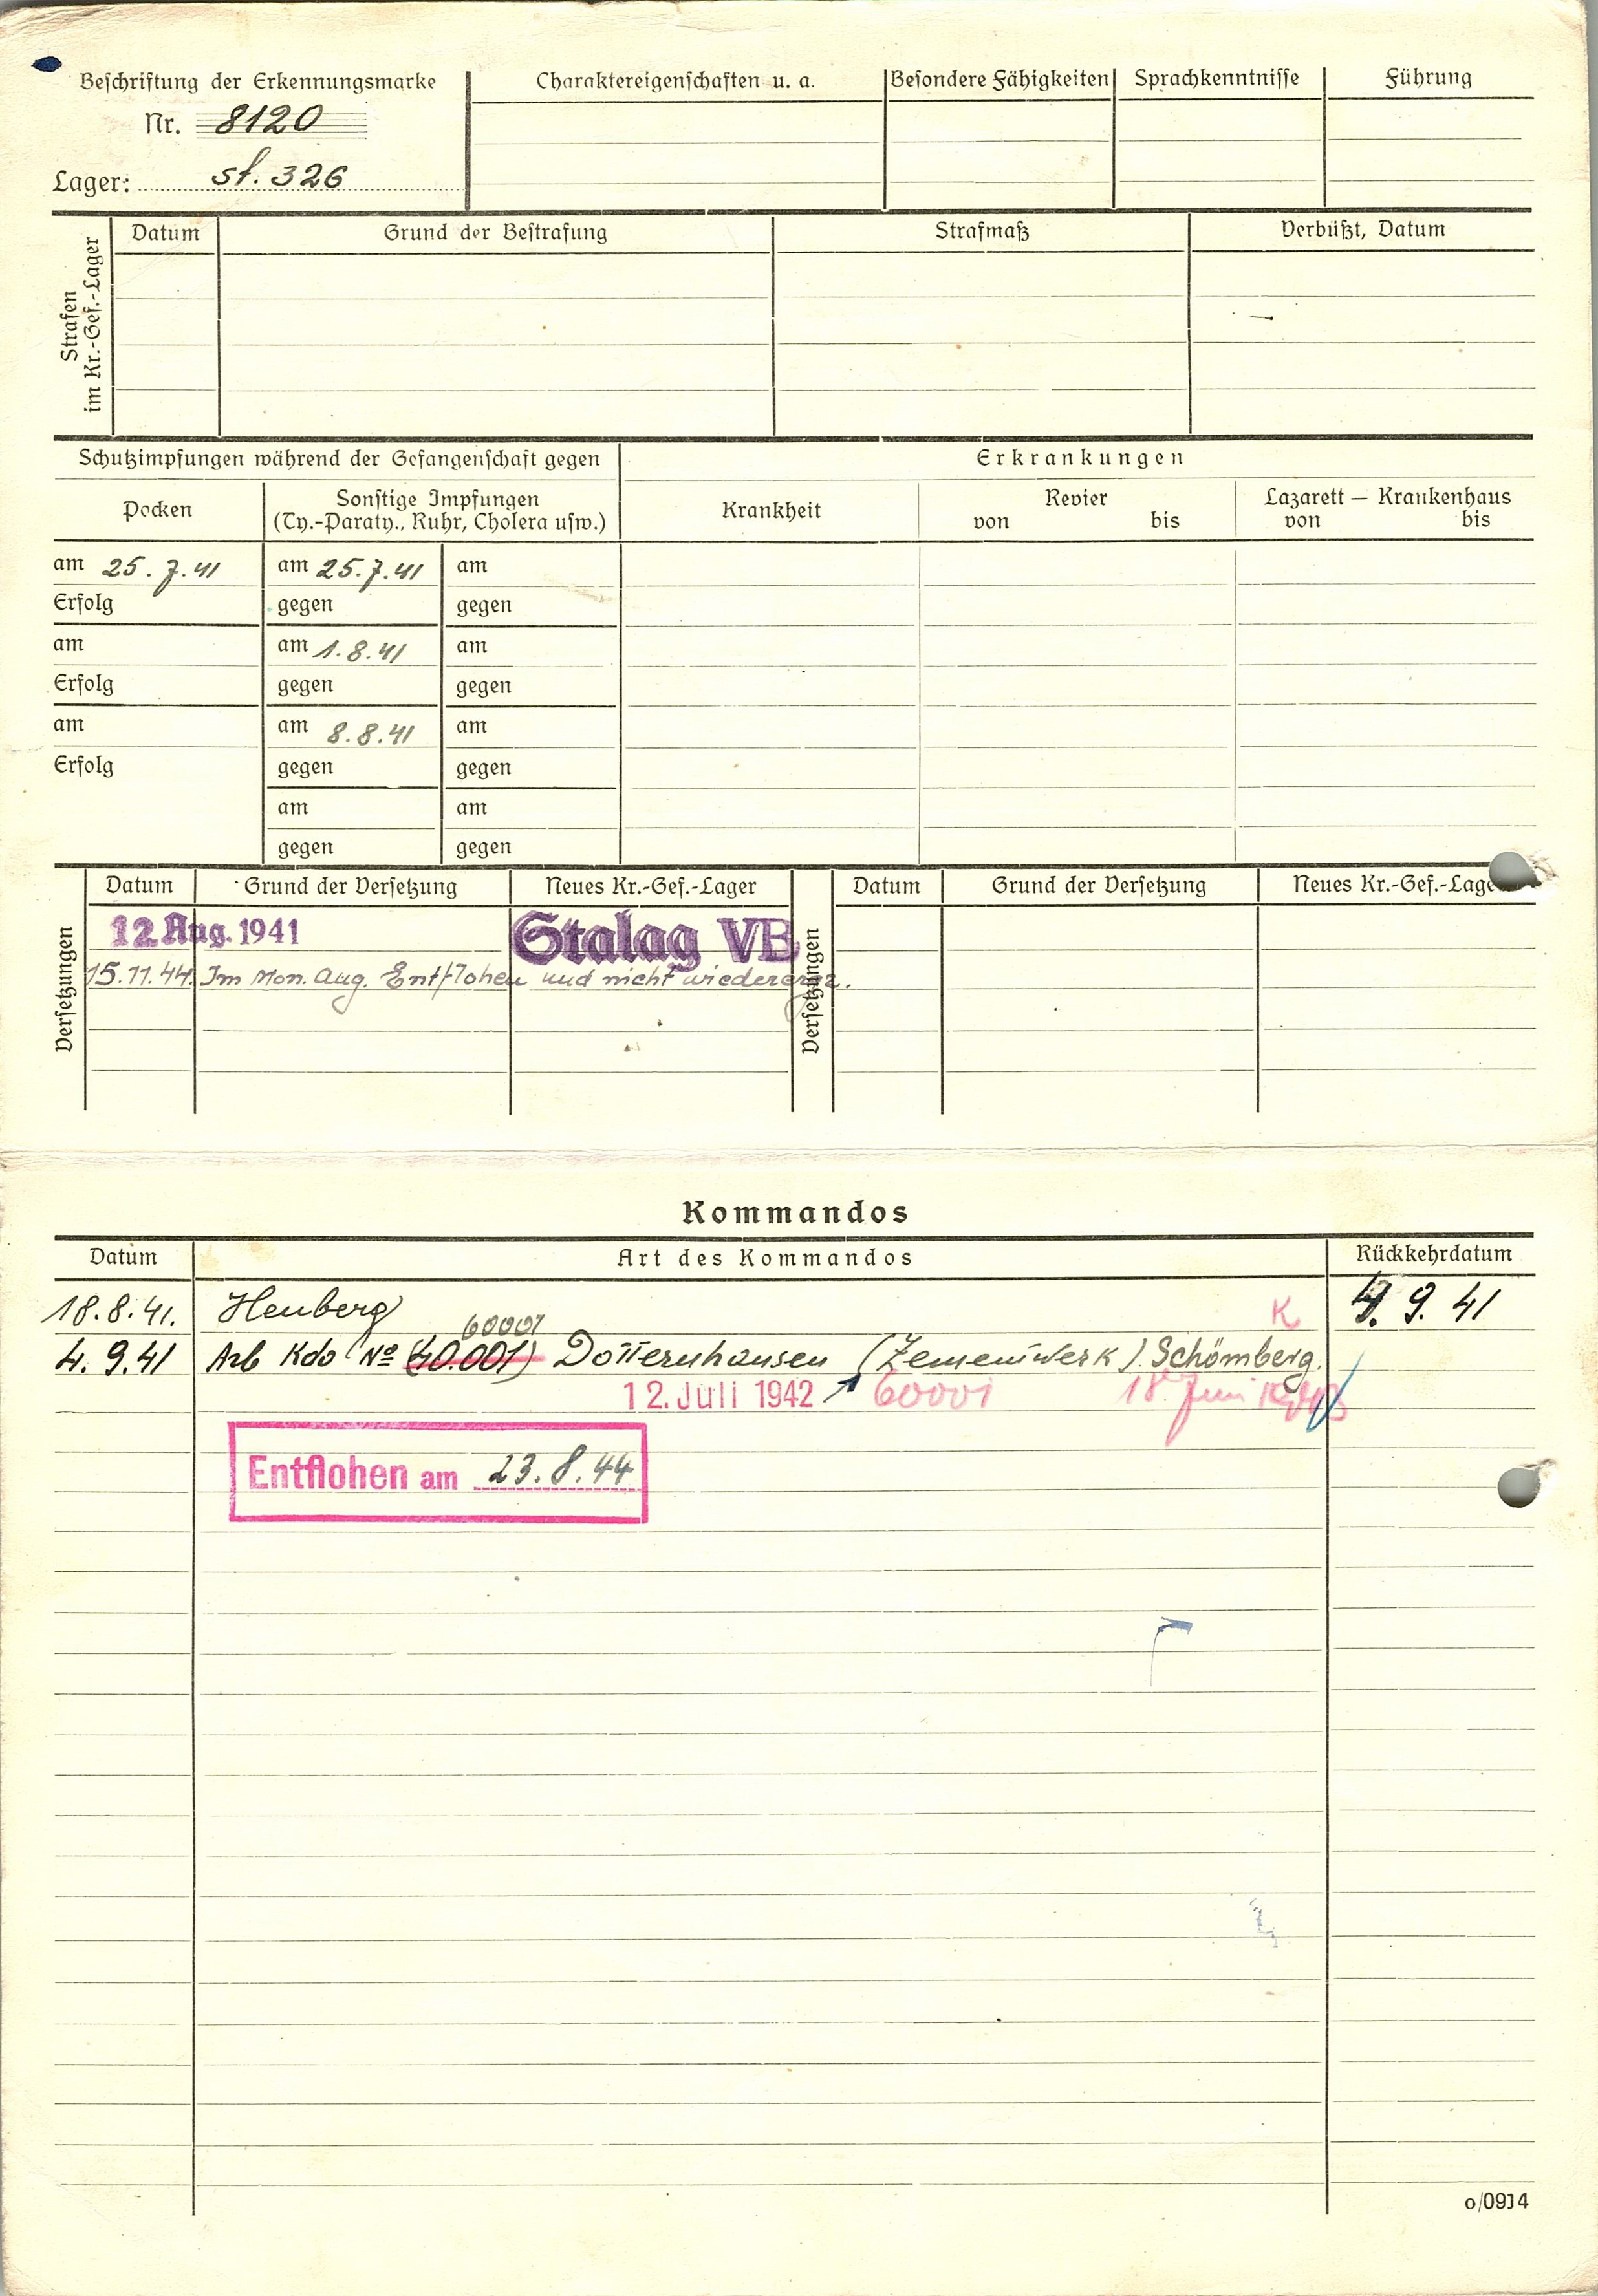 Beschriftung der Erkennungsmarke
Nr. 8120
Lager: St. 326
Charaktereigenschaften u. a.
Besondere Fähigkeiten
Sprachkenntnisse
Führung
Strafen im Kr.-Gef.-Lager
Datum
Grund der Bestrafung
Strafmaß
Verbüßt, Datum
Schutzimpfungen während der Gefangenschaft gegen
Erkrankungen
Pocken
Sonstige Impfungen
(Ty.-Paraty., Ruhr, Cholera usw.)
Krankheit
Revier
von bis
Lazarett — Krankenhaus
von bis
am 25.7.41 am 25.7.41 am
Erfolg gegen gegen
am am 1.8.41 am
Erfolg gegen gegen
am am 8.8.41 am
Erfolg gegen gegen
am am
gegen gegen
Versetzungen
Datum Grund der Versetzung Neues Kr.-Gef.-Lager
12. Aug. 1941 Stalag VB
15.11.44. Im Mon. Aug. Entflohen und nicht wiedererg.
Versetzungen
Datum Grund der Versetzung Neues Kr.-Gef.-Lage
Kommandos
Datum Art des Kommandos Rückkehrdatum
18.8.41. Heuberg K 4. 9. 41
60001
4. 9.41 Arb Kdo No (40.001) Dotternhausen (Zementwerk). Schömberg.
12. Juli 1942 60001 18. Juni 1943
Entflohen am 23.8.44
o/0914